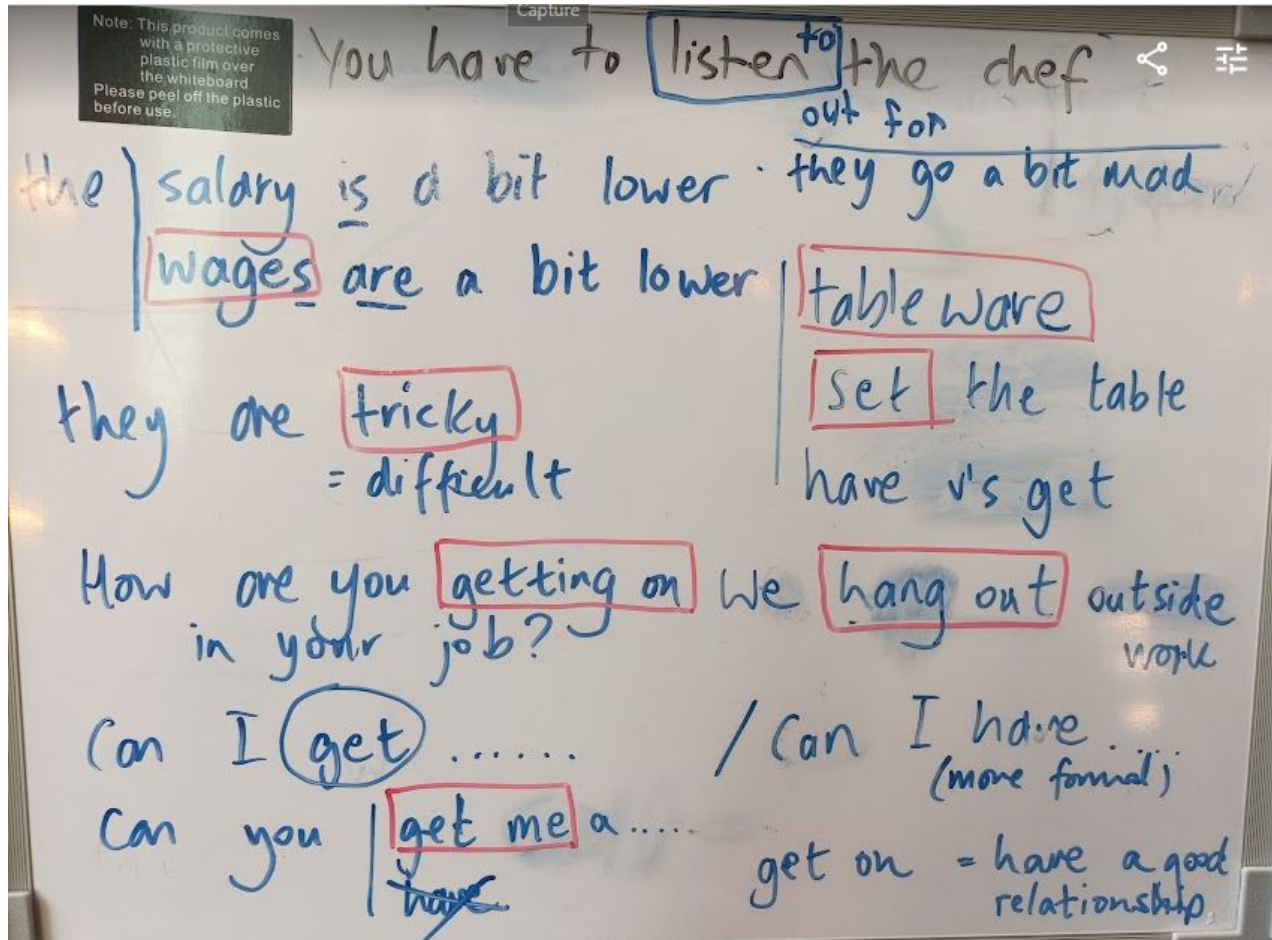 Capture
Note: This product comes
with a protective
plastic film over
the whiteboard
Please peel off the plastic
before use.
You have to listen to the chef
out for
the salary is a bit lower
they go a bit mad
wages are a bit lower
tableware
set the table
they are tricky
= difficult
have v's get
How are you getting on
in your job?
We hang out outside
work
Can I get ......
/ Can I have .....
(more formal)
Can you get me a .....
have
get on = have a good
relationship